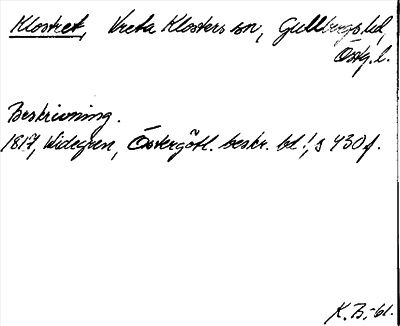 Klostret, Vreta Klosters sn, Gullbergs hd,
Östg. l.
Beskrivning.
1817, Widegren, Östergötl. beskr. bd 1, s 430 f.
K. B:-bl.